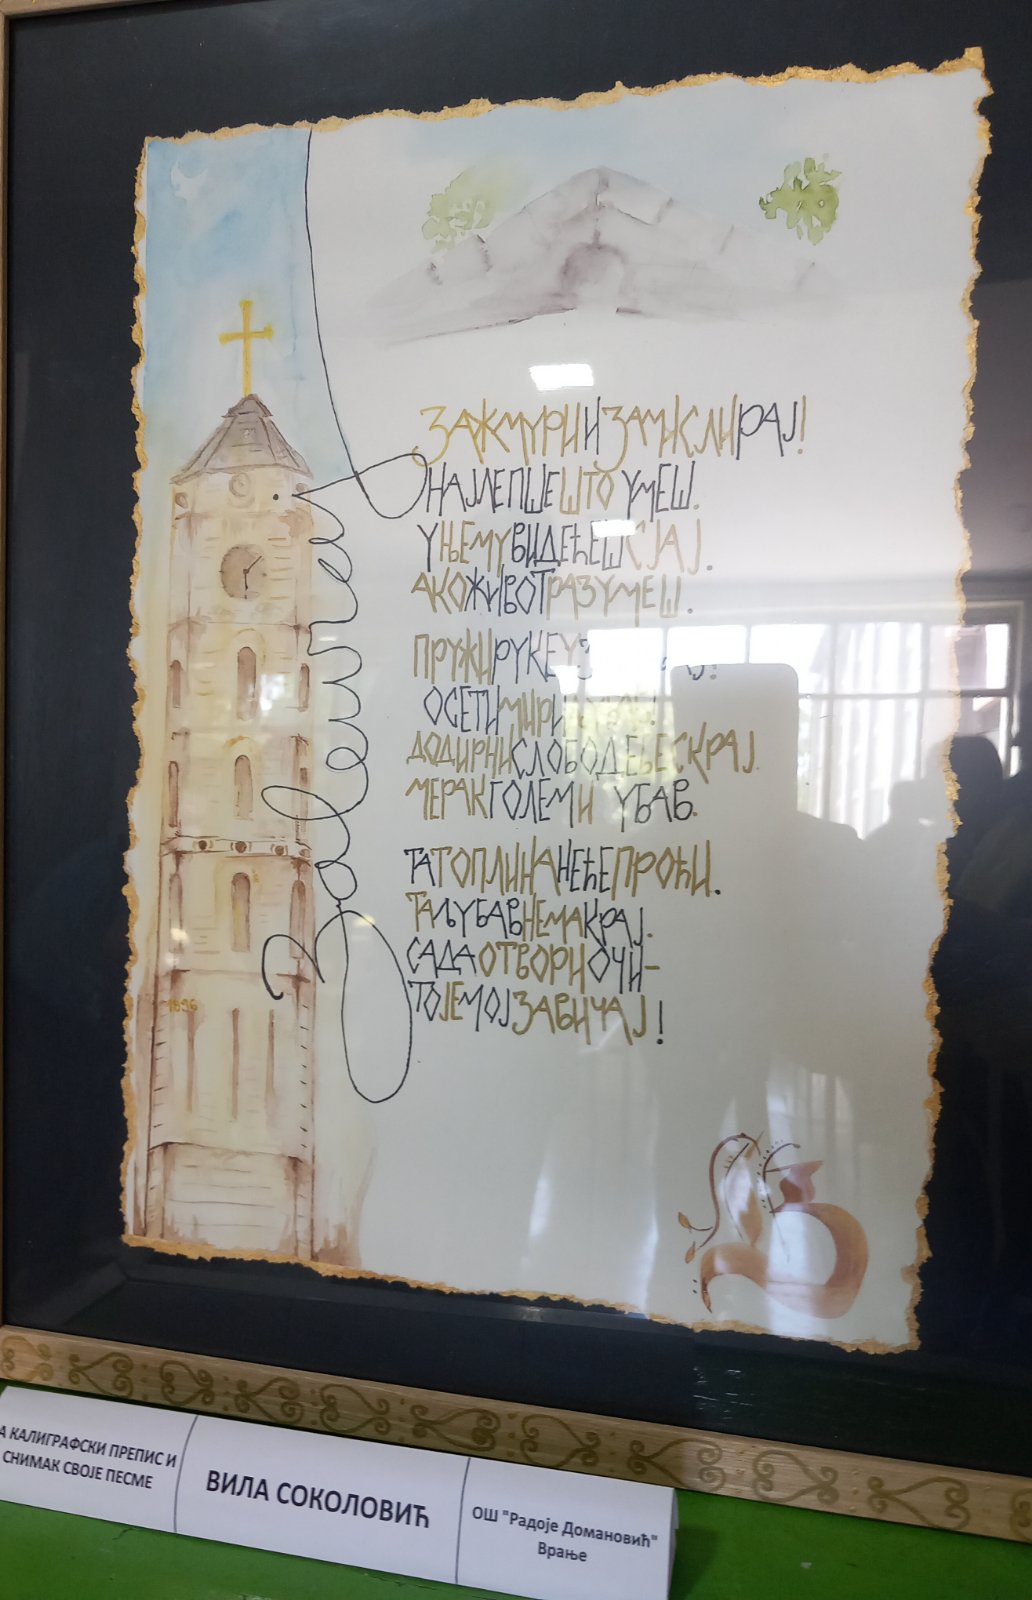 Завичај
ЗАЖМУРИ И ЗАМИСЛИ РАЈ!
НАЈЛЕПШЕ ШТО УМЕШ.
У ЊЕМУ ВИДЕЋЕШ СЈАЈ.
АКО ЖИВОТ РАЗУМЕШ.
ПРУЖИ РУКЕ У
ОСЕТИ МИРИ
ДОДИРНИ СЛОБОДЕ ЊЕ СКРАЈ.
МЕРАК ГОЛЕМ И УБАВ.
ТА ТОПЛИНА НЕЋЕ ПРОЋИ.
ТА ЉУБАВ НЕМА КРАЈ.
САДА ОТВОРИ ОЧИ–
ТО ЈЕ МОЈ ЗАВИЧАЈ!
1896
А КАЛИГРАФСКИ ПРЕПИС И
СНИМАК СВОЈЕ ПЕСМЕ
ВИЛА СОКОЛОВИЋ
ОШ "Радоје Домановић"
Врање